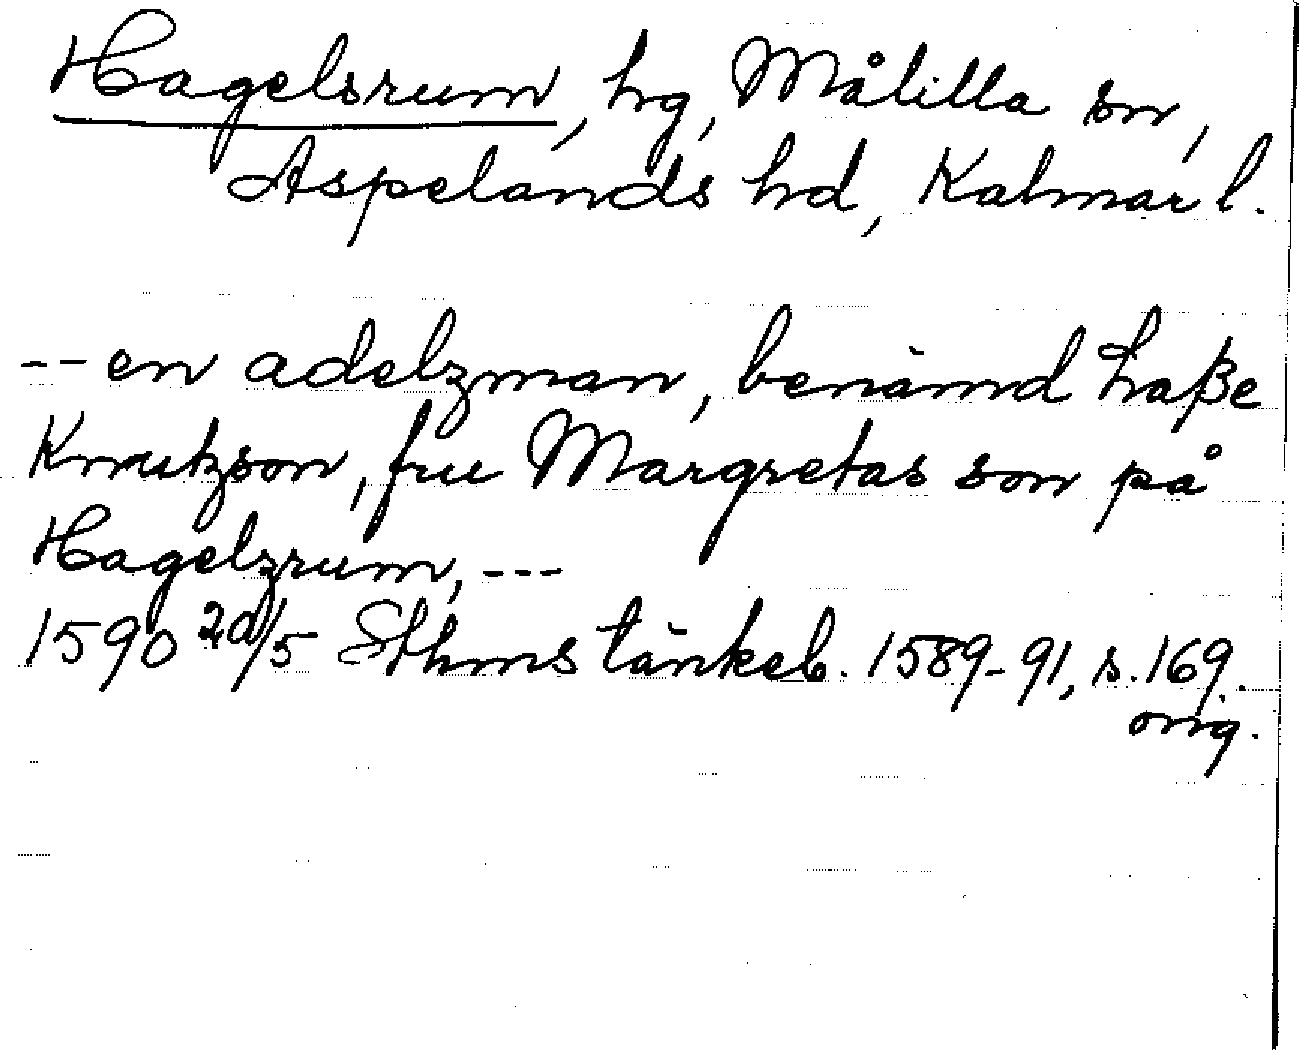 Hagelsrum, hg, Målilla sn,
Aspelands hd, Kalmar l.
-- en adelzman, benämd Laße
Knutzson, fru Margretas son på
Hagelzrum, ---
1590 20/5 Sthms tänkeb. 1589-91, s. 169.
orig.